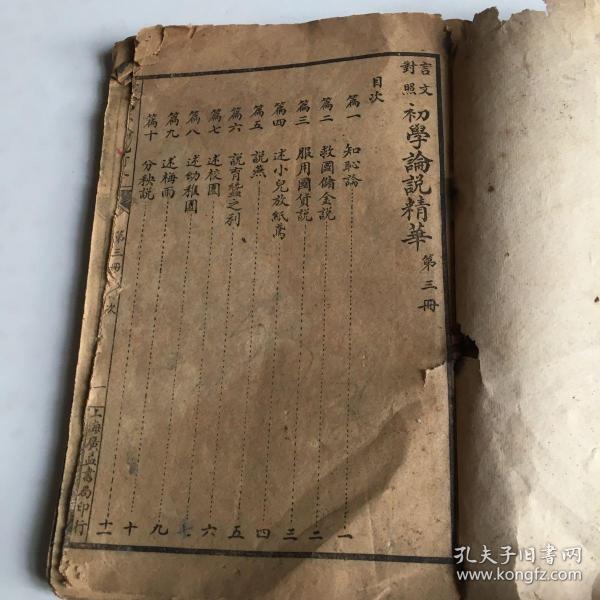 言文對照初學論說精華 第三冊
目次
篇一 知恥論 一
篇二 救國儲金說 二
篇三 服用國貨說 三
篇四 述小兒放紙鳶 四
篇五 說燕 五
篇六 說育蠶之利 六
篇七 述校園 七
篇八 述幼稚園 九
篇九 述梅雨 十
篇十 分秧說 十一
第三冊
次
一
上海廣益書局印行
孔夫子旧书网
www.kongfz.com